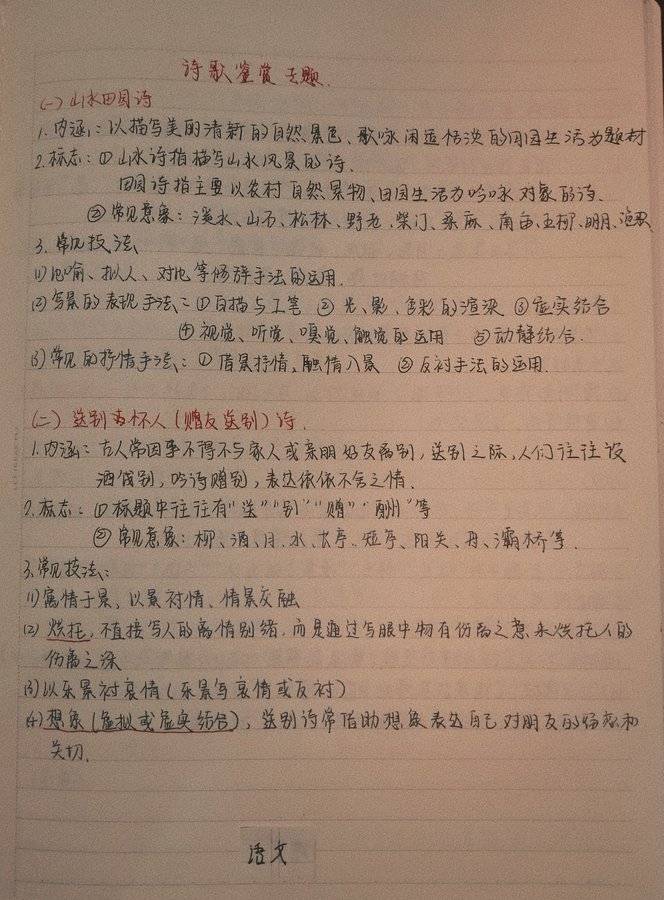 诗歌鉴赏专题.
(一) 山水田园诗
1. 内涵: 以描写美的清新的自然景色、歌咏闲适恬淡的田园生活为题材
2. 标志: ① 山水诗指描写山水风景的诗.
田园诗指主要以农村自然景物、田园生活为吟咏对象的诗.
② 常见意象: 溪水、山石、松林、野老、柴门、桑麻、南亩、五柳、明月、渔歌
3. 常见技法
(1) 比喻、拟人、对比等修辞手法的运用.
(2) 写景的表现手法: ① 白描与工笔 ② 光、影、色彩的渲染 ③ 虚实结合
④ 视觉、听觉、嗅觉、触觉的运用 ⑤ 动静结合.
(3) 常见的抒情手法: ① 借景抒情, 融情入景 ② 反衬手法的运用.
(二) 送别怀人 (赠友送别) 诗.
1. 内涵: 古人常因事不得不与家人或亲朋好友离别, 送别之际, 人们往往设
酒饯别, 吟诗赠别, 表达依依不舍之情.
2. 标志: ① 标题中往往有"送""别""赠""酬"等
② 常见意象: 柳、酒、月、水、长亭、短亭、阳关、舟、灞桥等.
3. 常见技法:
(1) 寓情于景, 以景衬情、情景交融
(2) 烘托, 不直接写人的离情别绪, 而是通过写眼中物有伤离之意来烘托人的
伤离之深
(3) 以乐景衬哀情 (乐景写哀情或反衬)
(4) 想象 (虚拟或虚实结合), 送别诗常借助想象表达自己对朋友的和
关切.
语文